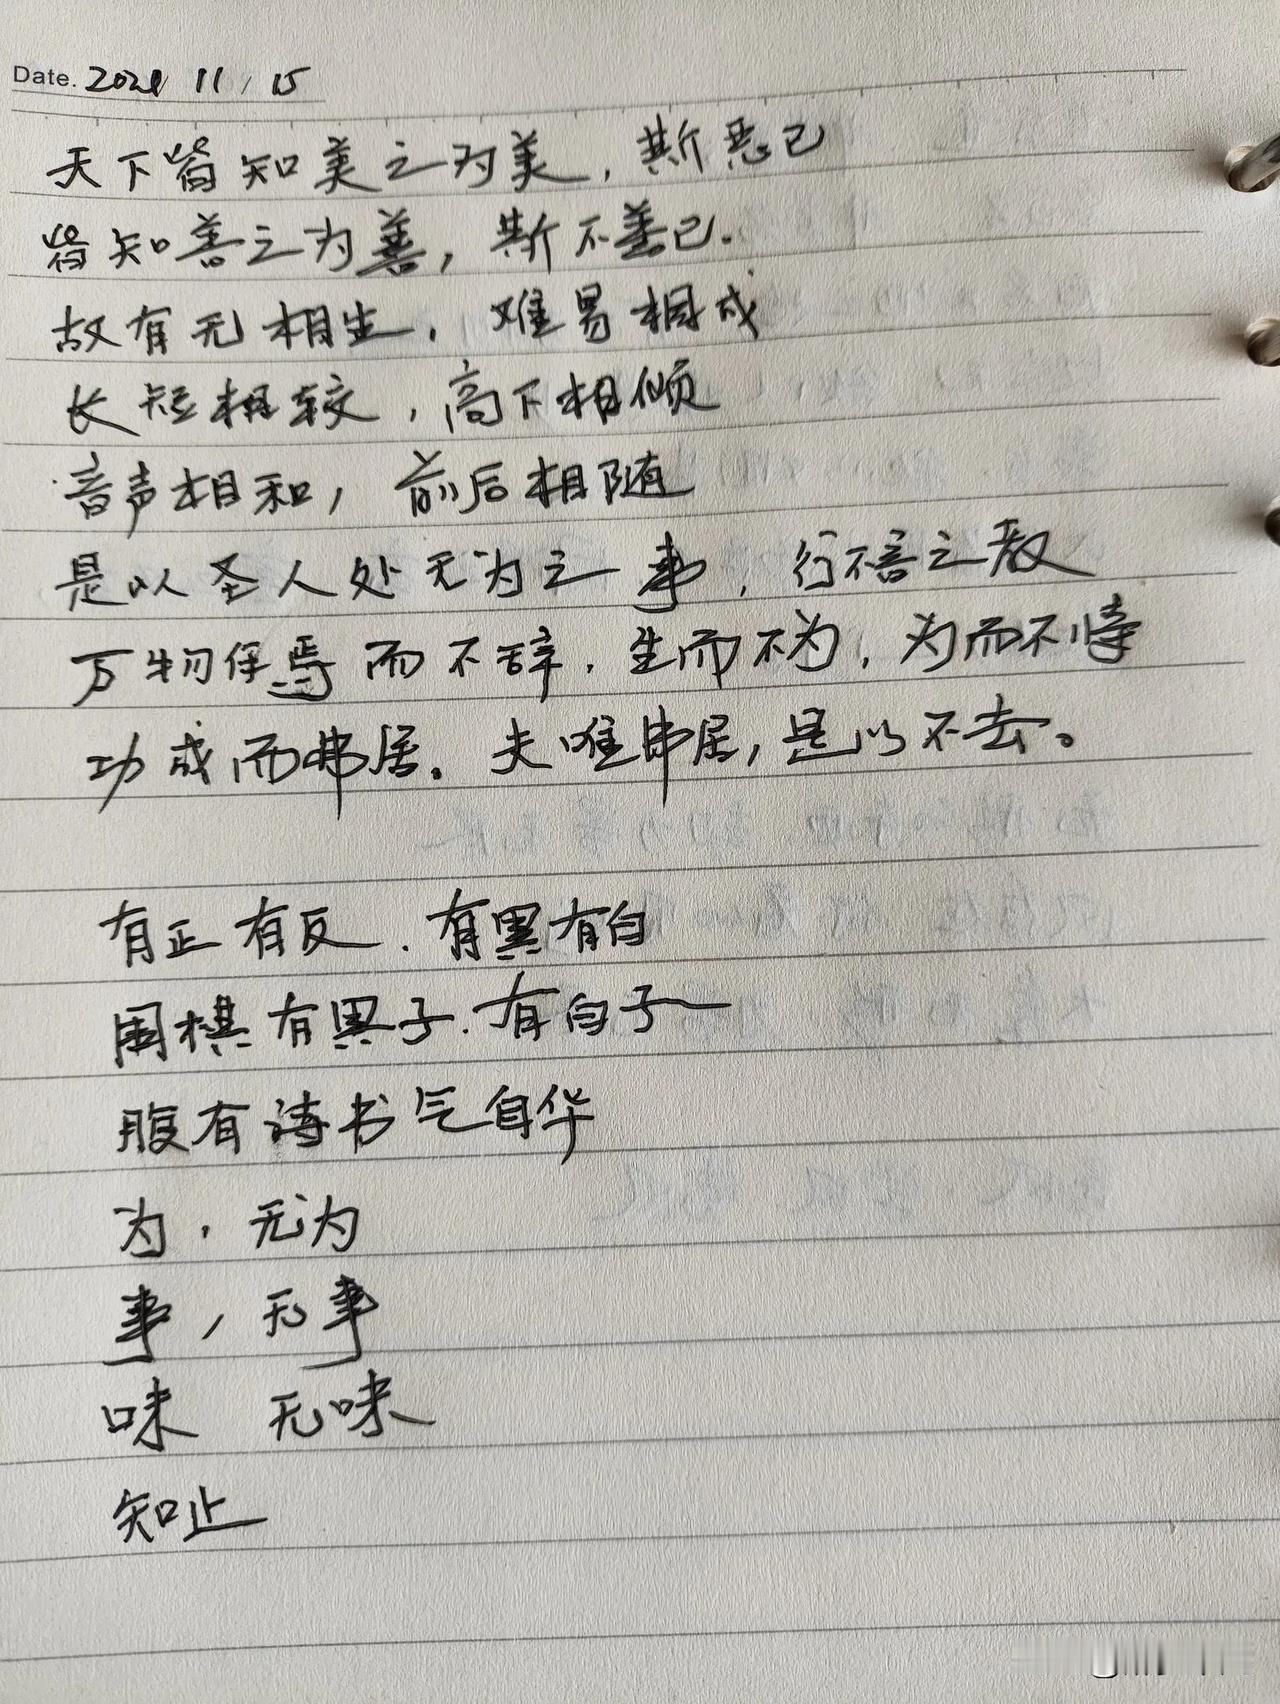 Date. 2021 11/15
天下皆知美之为美，斯恶已
皆知善之为善，斯不善已.
故有无相生，难易相成
长短相较，高下相倾
音声相和，前后相随
是以圣人处无为之事，行不言之教
万物作焉而不辞，生而不为，为而不恃
功成而弗居。夫唯弗居，是以不去。
有正有反.有黑有白
围棋有黑子.有白子
腹有诗书气自华
为，无为
事，无事
味 无味
知止